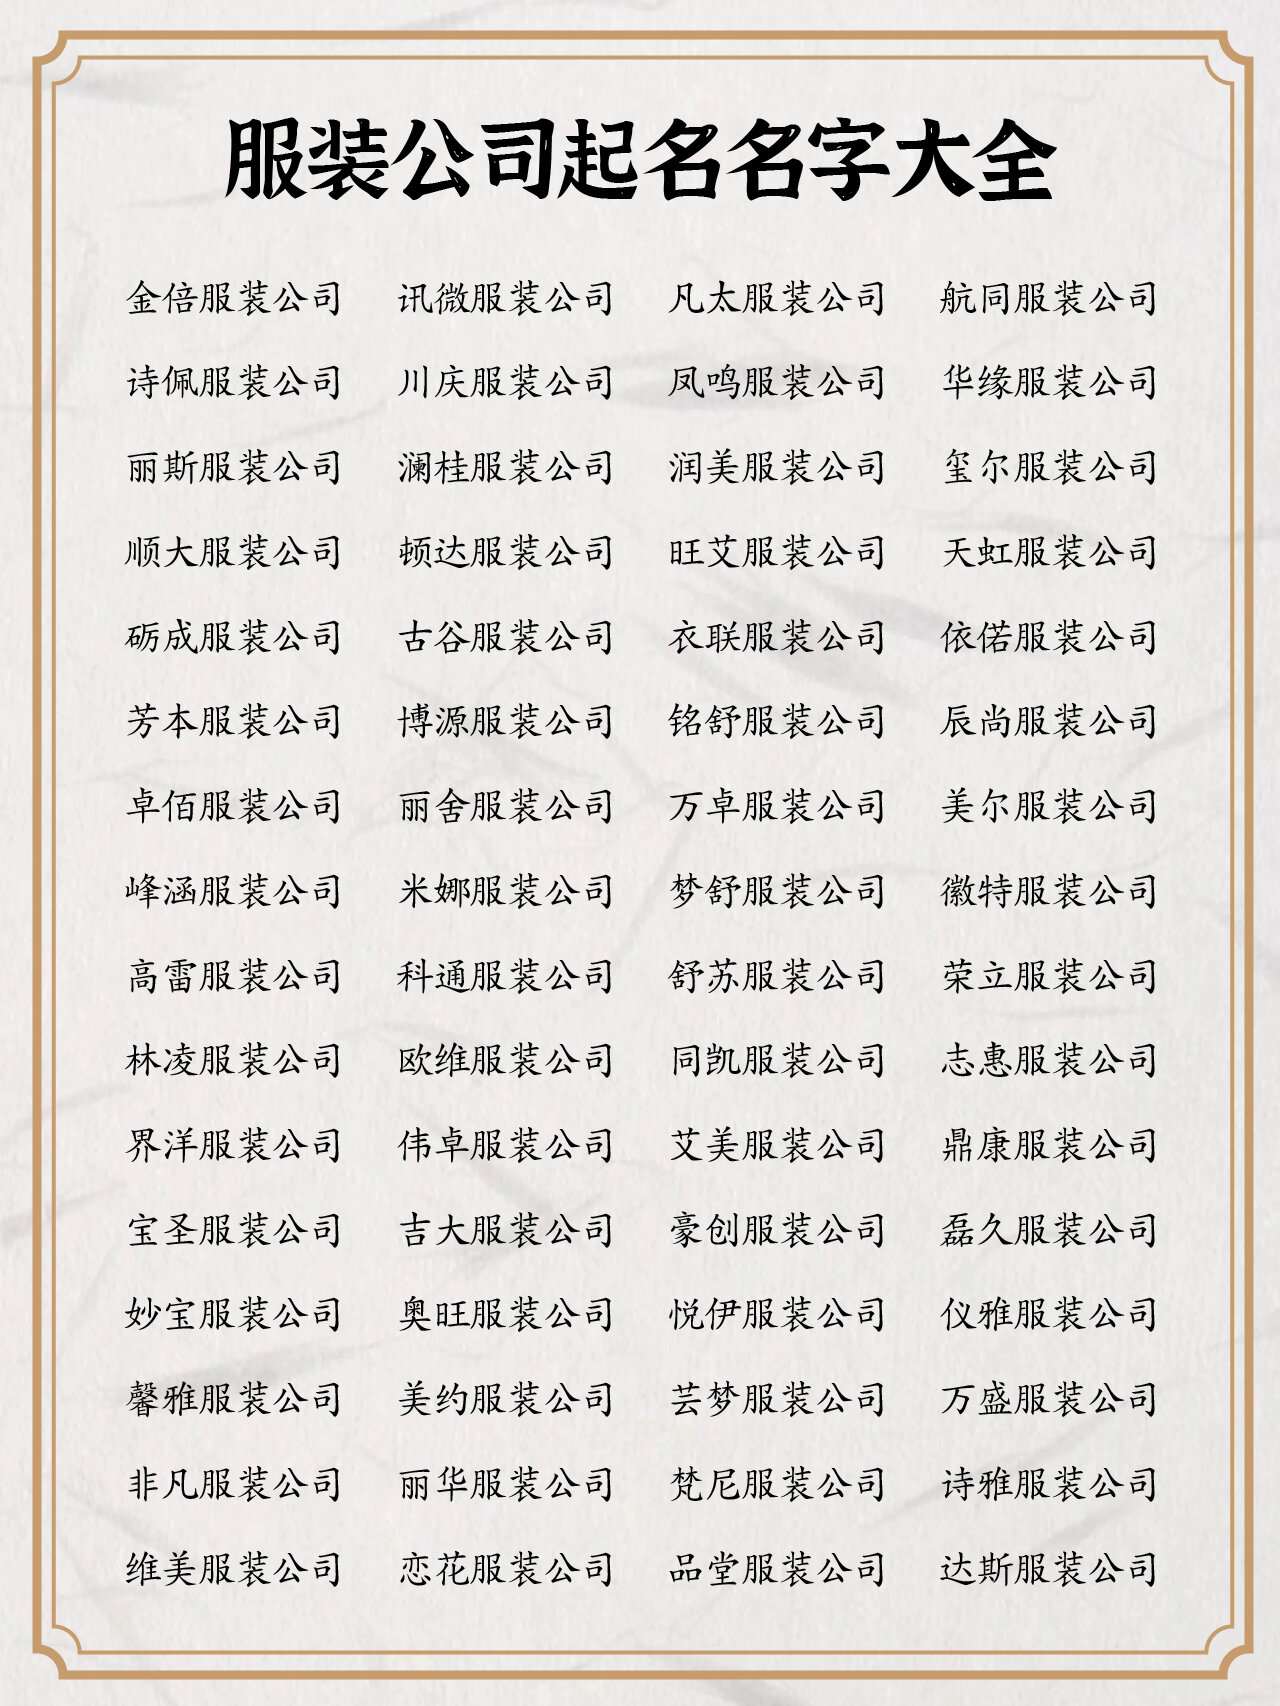 服装公司起名名字大全
金倍服装公司 讯微服装公司 凡太服装公司 航同服装公司
诗佩服装公司 川庆服装公司 凤鸣服装公司 华缘服装公司
丽斯服装公司 澜桂服装公司 润美服装公司 玺尔服装公司
顺大服装公司 顿达服装公司 旺艾服装公司 天虹服装公司
砺成服装公司 古谷服装公司 衣联服装公司 依偌服装公司
芳本服装公司 博源服装公司 铭舒服装公司 辰尚服装公司
卓佰服装公司 丽舍服装公司 万卓服装公司 美尔服装公司
峰涵服装公司 米娜服装公司 梦舒服装公司 徽特服装公司
高雷服装公司 科通服装公司 舒苏服装公司 荣立服装公司
林凌服装公司 欧维服装公司 同凯服装公司 志惠服装公司
界洋服装公司 伟卓服装公司 艾美服装公司 鼎康服装公司
宝圣服装公司 吉大服装公司 豪创服装公司 磊久服装公司
妙宝服装公司 奥旺服装公司 悦伊服装公司 仪雅服装公司
馨雅服装公司 美约服装公司 芸梦服装公司 万盛服装公司
非凡服装公司 丽华服装公司 梵尼服装公司 诗雅服装公司
维美服装公司 恋花服装公司 品堂服装公司 达斯服装公司